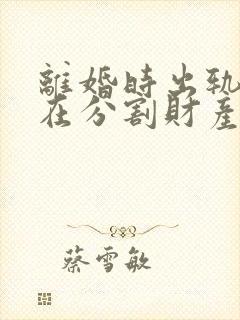 離婚時出軌
在分割財產
蔡雪敏